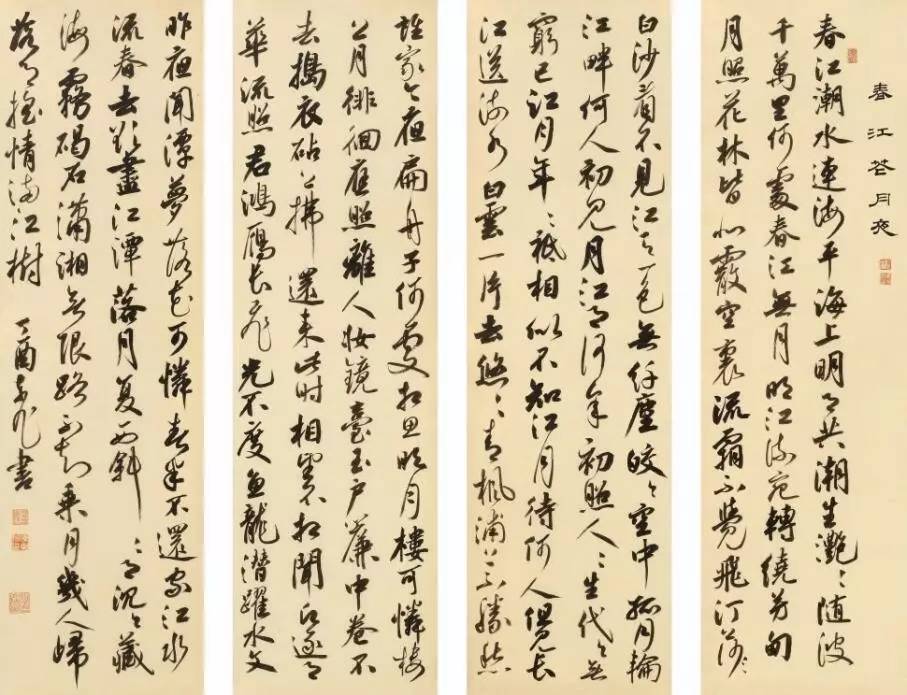 春江花月夜
春江潮水連海平海上明月共潮生灧〻随波
千萬里何處春江無月明江流宛轉繞芳甸
月照花林皆似霰空裏流霜不覺飛汀
白沙看不見江天一色無纖塵皎〻空中孤月輪
江畔何人初見月江月何年初照人〻生代〻無
窮已江月年〻祇相似不知江月待何人但見長
江送流水白雲一片去悠〻青楓浦上不勝愁
誰家今夜扁舟子何處相思明月樓可憐樓
上月徘徊應照離人妝鏡臺玉戶簾中卷不
去搗衣砧上拂還來此時相望不相聞願逐月
華流照君鴻雁長飛光不度魚龍潛躍水文
昨夜閒潭夢落花可憐春半不還家江水
流春去欲盡江潭落月复西斜〻月沉〻藏
海霧碣石瀟湘無限路不知乘月幾人歸
落月摇情滿江樹 丁酉 書